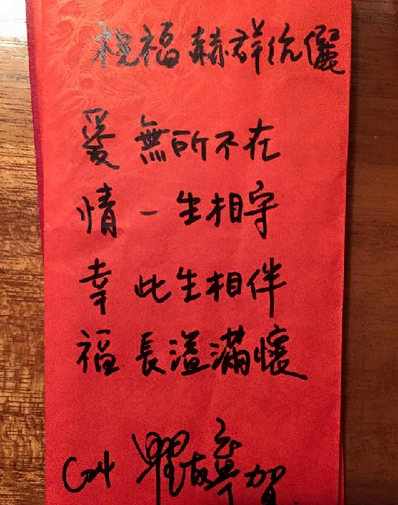 祝福赫群伉儷
愛 無所不在
情 一生相守
幸 此生相伴
福 長溢滿懷
賀